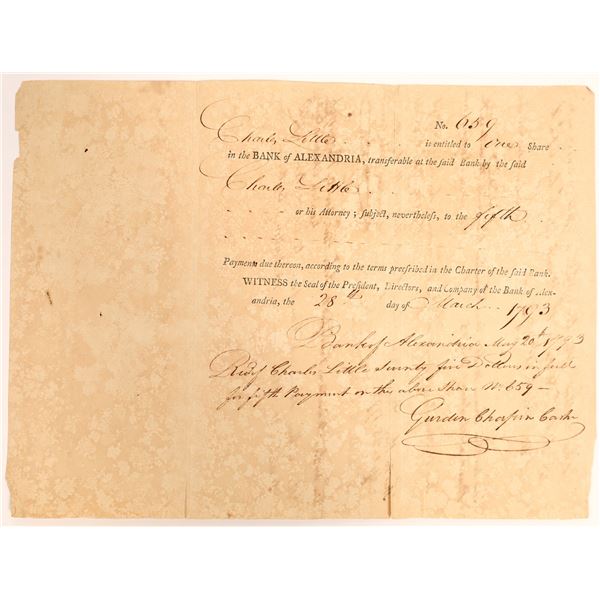 No. 659
Charles Little is entitled to one Share
in the BANK of ALEXANDRIA, transferable at the said Bank by the said
Charles Little
or his Attorney; subject, nevertheless, to the fifth
Payments due thereon, according to the terms prescribed in the Charter of the said Bank.
WITNESS the Seal of the President, Directors, and Company of the Bank of Alex-
andria, the 28th day of March 1793
Bank of Alexandria May 20th 1793
Recd of Charles Little Seventy five Dollars in full
for fifth Payment on the above Share No. 659 —
Gurden Chapin Cashr